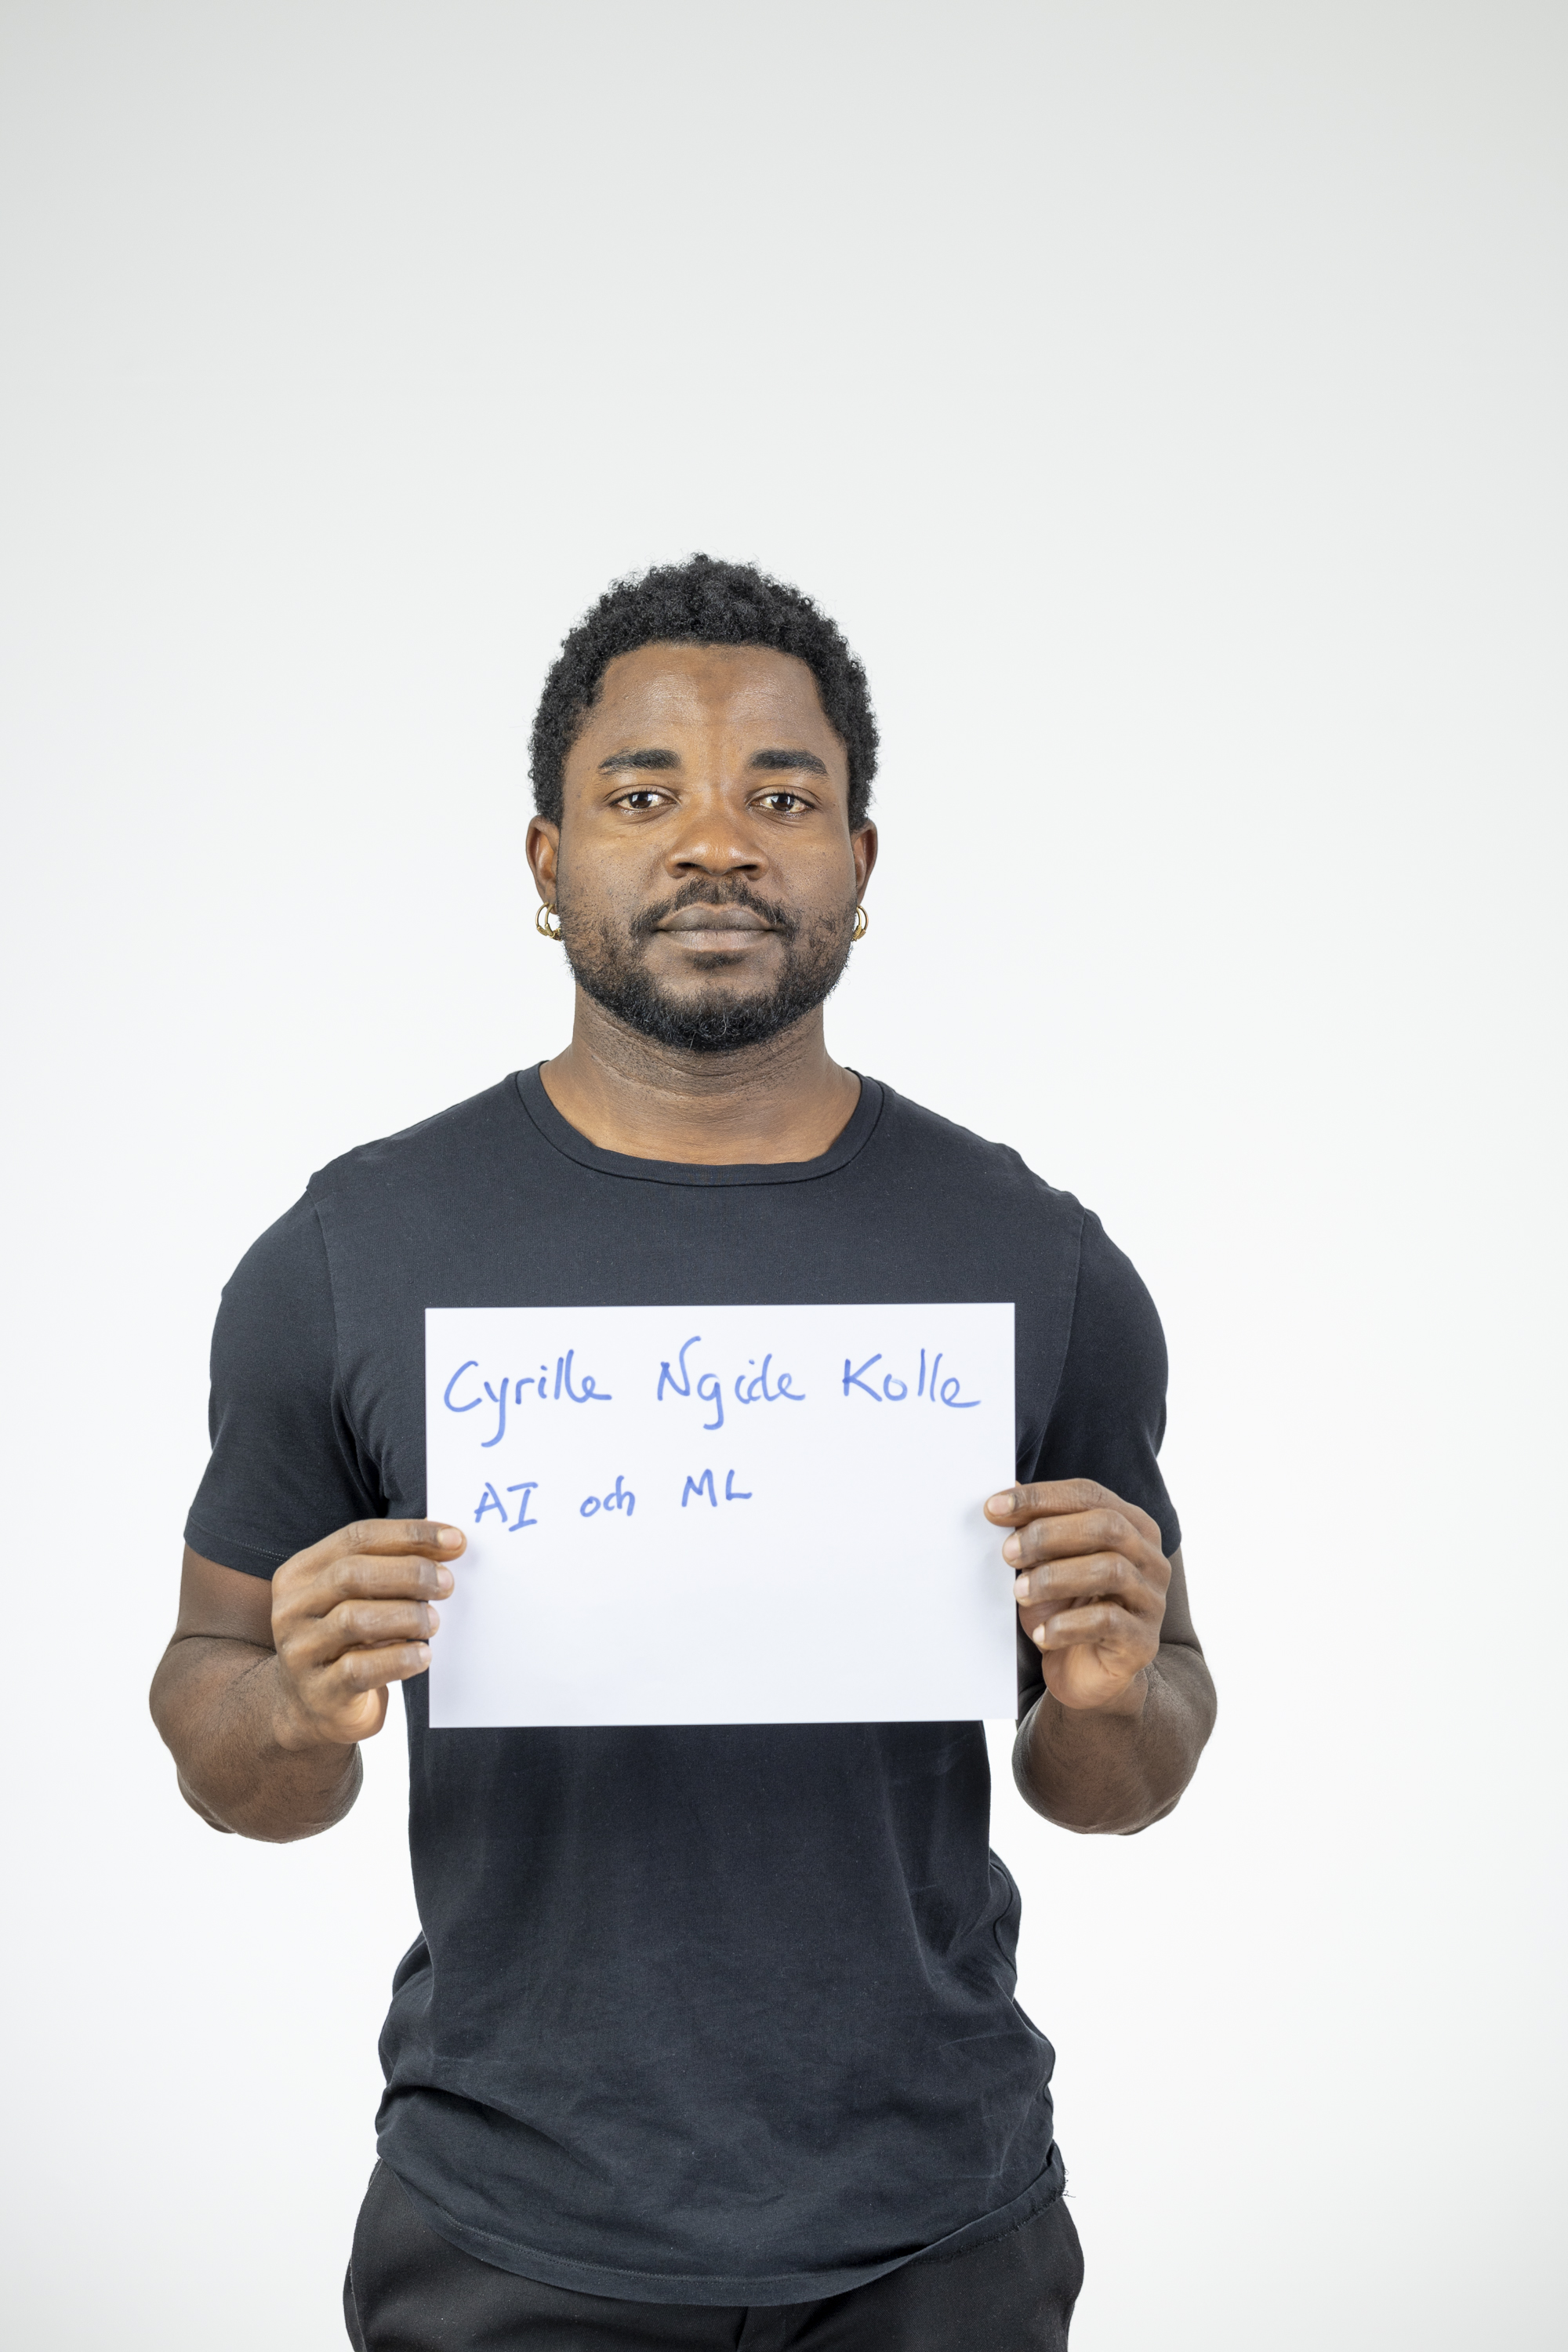 Cyrille Ngide Kolle
AI och ML